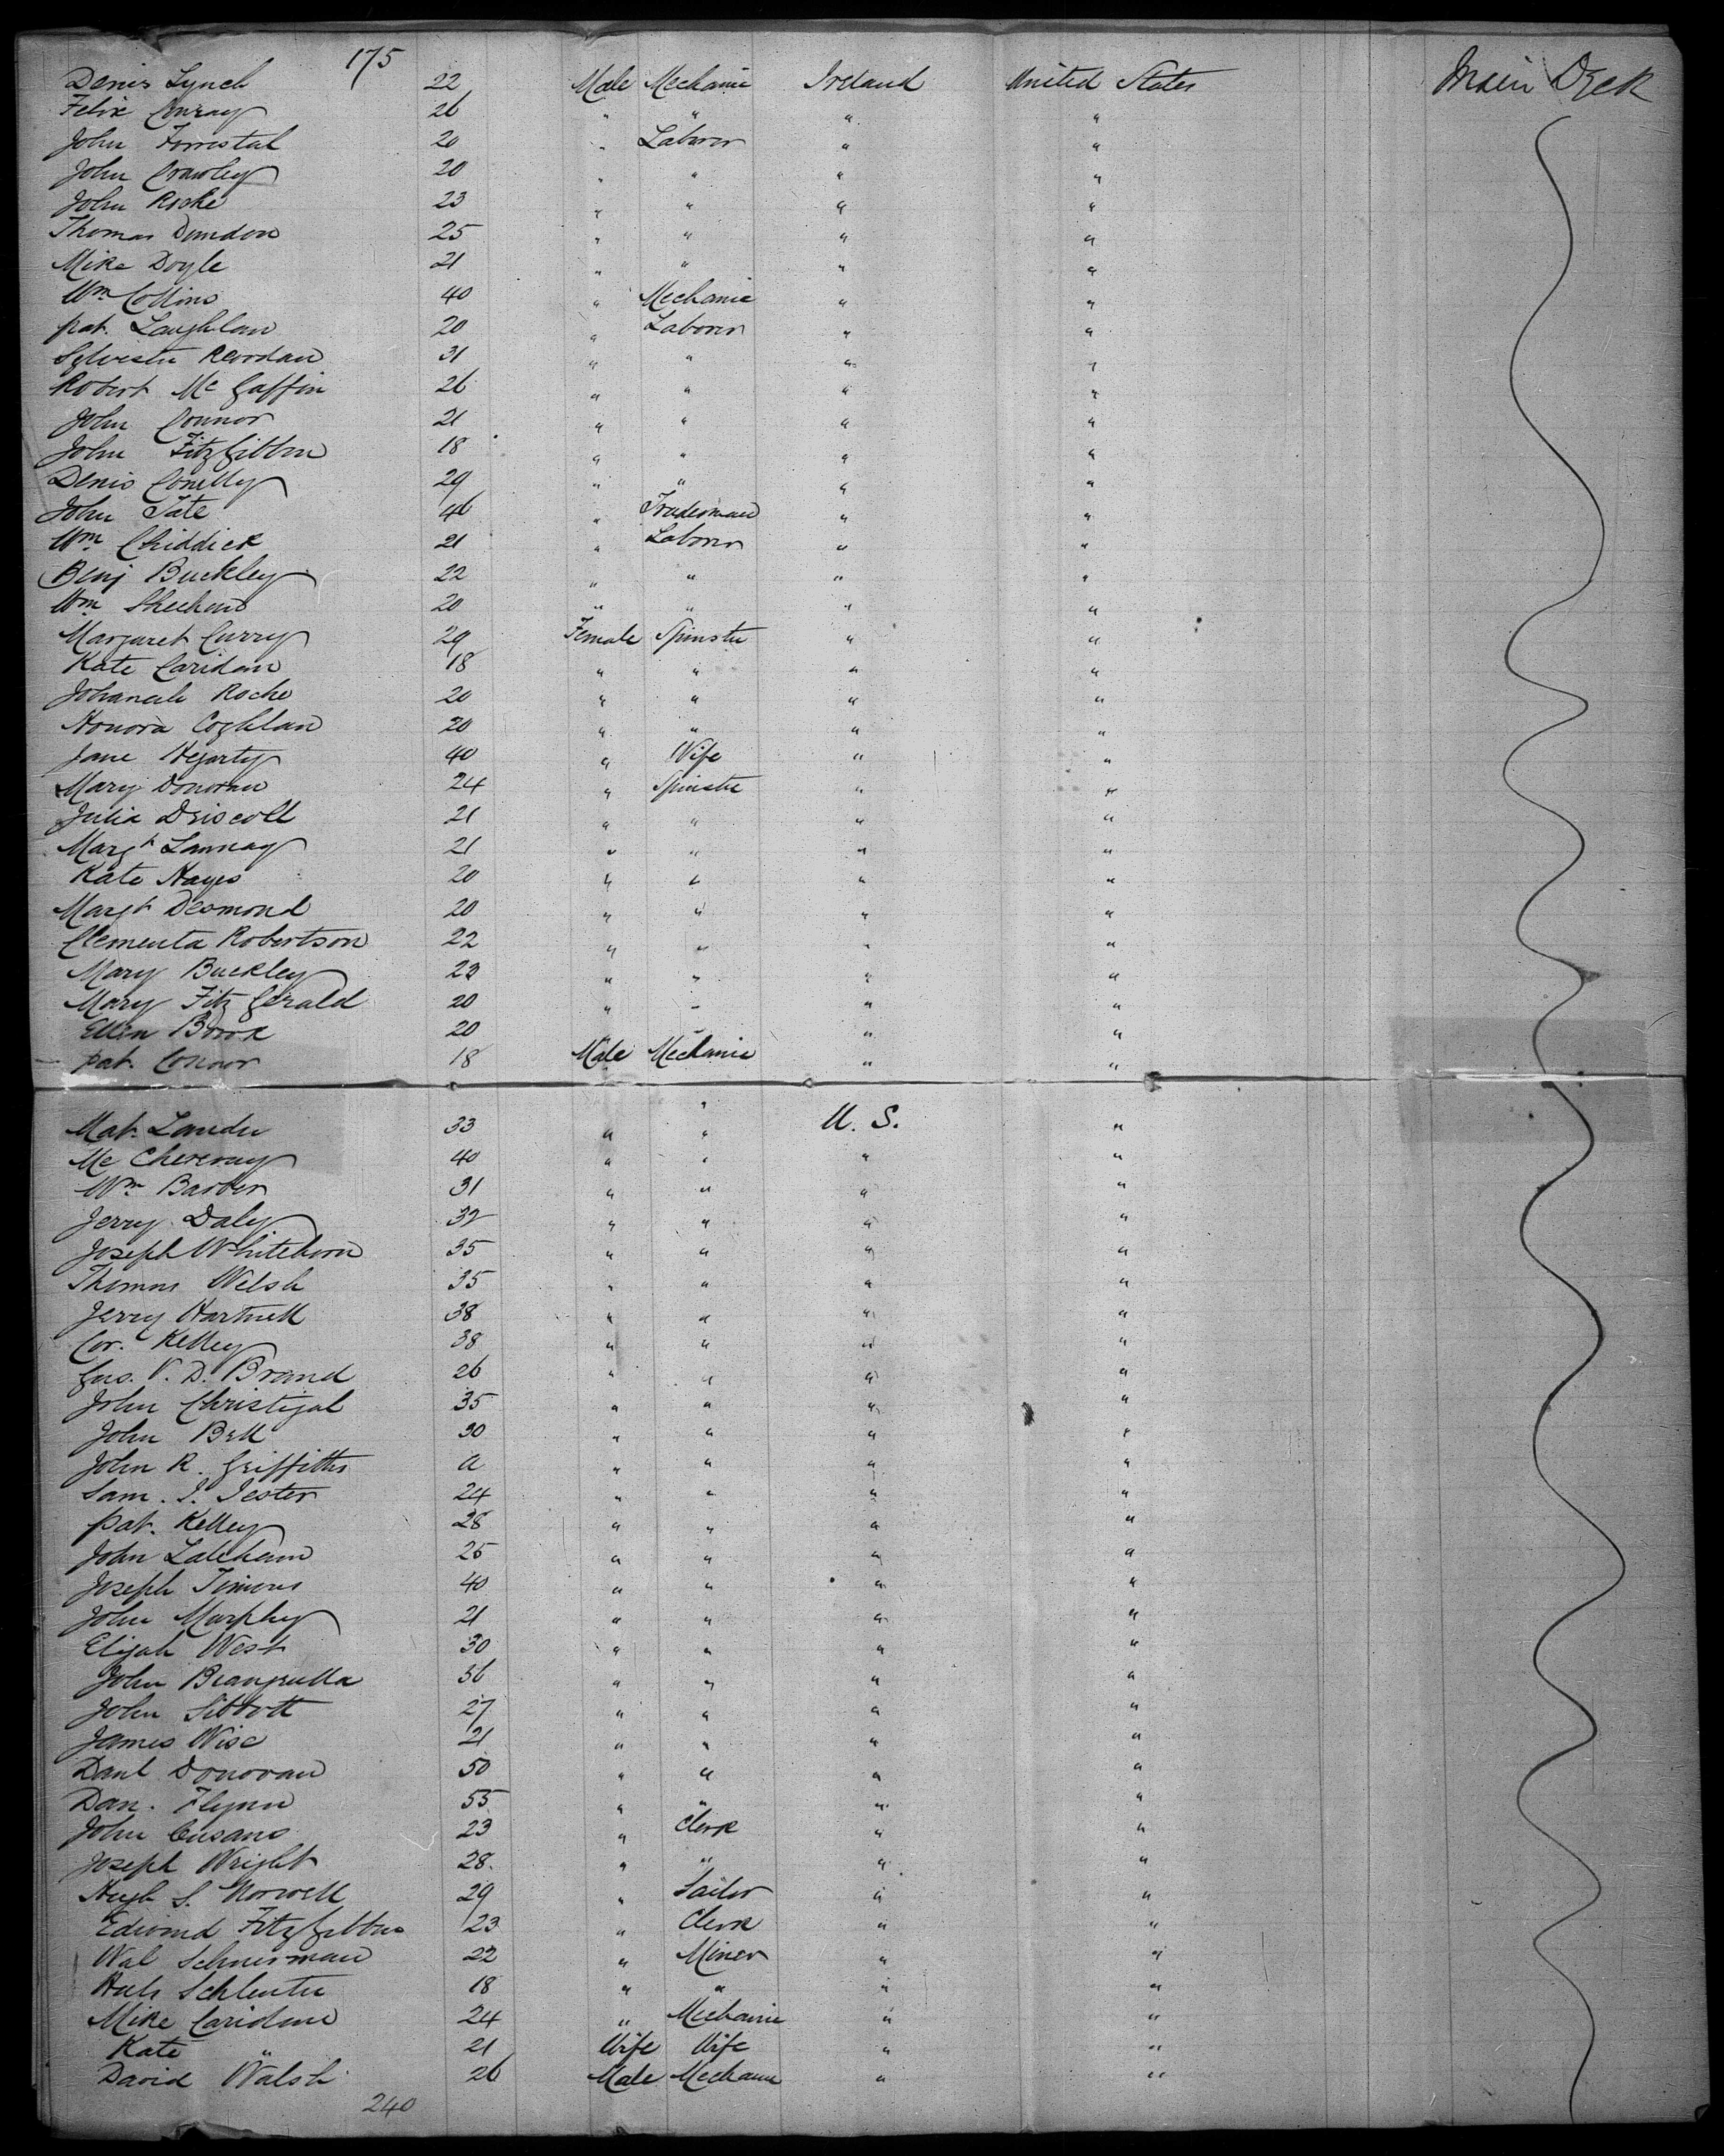 175
Denis Lynch 22 Male Mechanic Ireland United States Main Deck
Felix Conray 26 " " " "
John Forrestal 20 " Laborer " "
John Crawley 20 " " " "
John Roche 23 " " " "
Thomas Dundon 25 " " " "
Mike Doyle 21 " " " "
Wm Collins 40 " Mechanic " "
pat. Laughlan 20 " Laborer " "
Sylvester Reordan 31 " " " "
Robert Mc Gaffin 26 " " " "
John Connor 21 " " " "
John FitzGibbon 18 " " " "
Denis Conelly 29 " " " "
John Tate 46 " Tradesman " "
Wm Chiddick 21 " Laborer " "
Benj Buckley 22 " " " "
Wm Sheehan 20 " " " "
Margaret Curry 29 Female Spinster " "
Kate Caridan 18 " " " "
Johanah Roche 20 " " " "
Honora Coghlan 20 " " " "
Jane Hegarty 40 " Wife " "
Mary Donovan 24 " Spinster " "
Julia Driscoll 21 " " " "
Margt 21 " " " "
Kate Hayes 20 " " " "
Margt Desmond 20 " " " "
Clementa Robertson 22 " " " "
Mary Buckley 23 " " " "
Mary FitzGerald 20 " " " "
Ellen 20 " "
pat. Connor 18 Male Mechanic " "
Mat. Lander 33 " " U. S. "
Mc 40 " " " "
Wm Barber 31 " " " "
Jerry Daly 32 " " " "
Joseph Whitehorn 35 " " " "
Thomas Welsh 35 " " " "
Jerry Hartnett 38 " " " "
Cor. Kelley 38 " " " "
V. D. Brand 26 " " " "
John 35 " " " "
John Bell 30 " " " "
John R. Griffiths a " " " "
Sam. J. Jester 24 " " " "
pat. Kelley 28 " " " "
John 25 " " " "
Joseph Timons 40 " " " "
John Murphy 21 " " " "
Elijah West 30 " " " "
John 36 " " " "
John Sibbott 27 " " " "
James Wise 21 " " " "
Danl Donovan 50 " " " "
Dan. Flynn 55 " " " "
John Cusano 23 " Clerk " "
Joseph Wright 28. " " " "
Hugh S. Norwell 29 " Sailor " "
Edward FitzGibbons 23 " Clerk " "
Wal 22 " Miner " "
Schluter 18 " " " "
Mike Caridan 24 " Mechanic " "
Kate " 21 Wife Wife " "
David Walsh 26 Male Mechanic " "
240